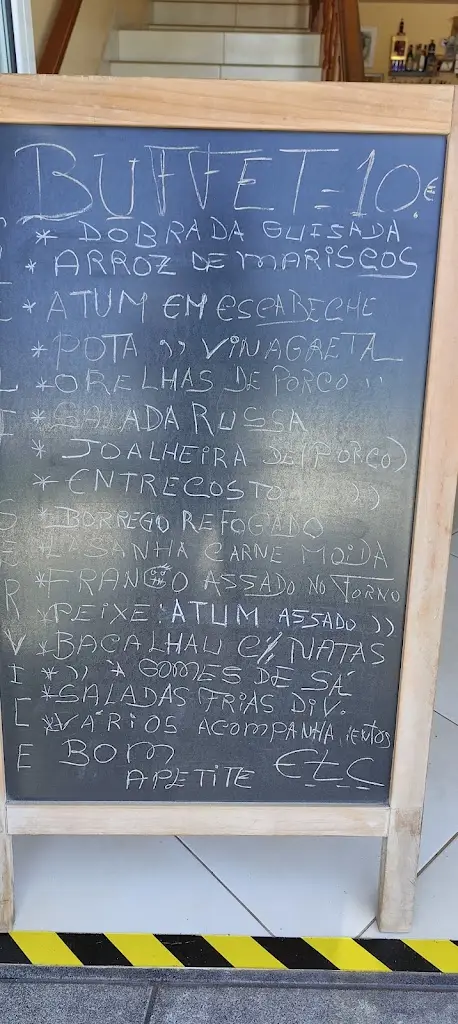 BUFFET = 10.€
* DOBRADA GUISADA
* ARROZ DE MARISCOS
* ATUM EM ESCABECHE
* POTA ,, VINAGRETA
* ORELHAS DE PORCO ,,
* SALADA RUSSA
* JOALHEIRA DE (PORCO)
* ENTRECOSTO ,,
* BORREGO REFOGADO
LASANHA CARNE MOIDA
* FRANGO ASSADO NO FORNO
* PEIXE: ATUM ASSADO ,,
* BACALHAU C/ NATAS
* ,, * GOMES DE SÁ
* SALADAS FRIAS DIV.
* VÁRIOS ACOMPANHAMENTOS
BOM APETITE ETC
SERVICE